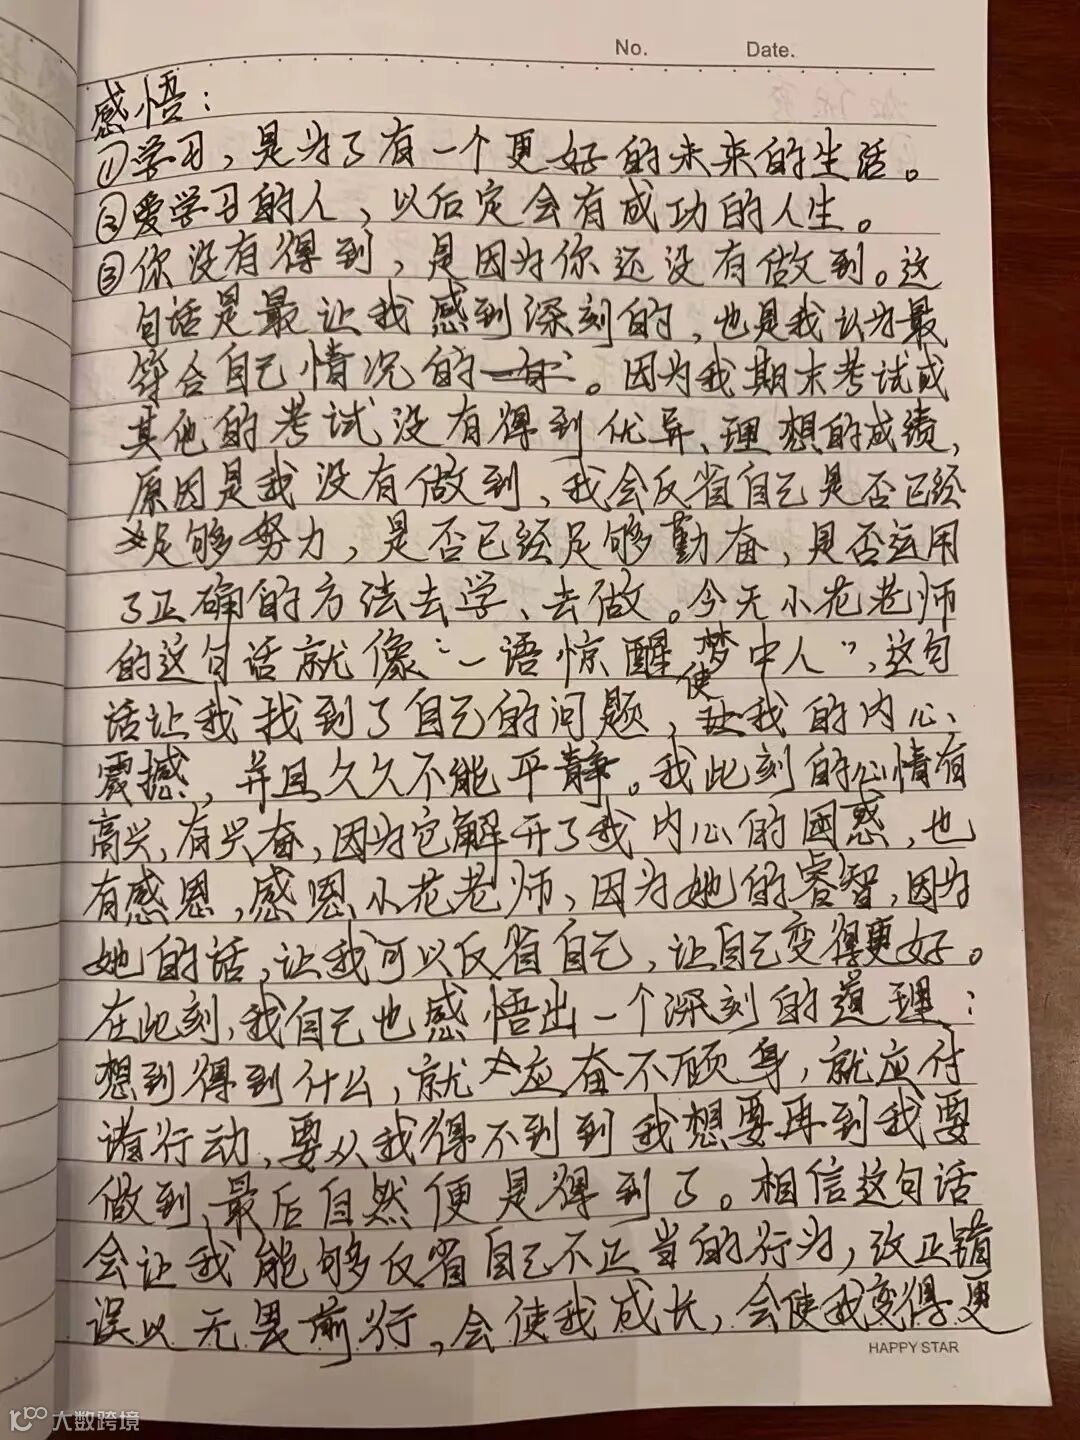 No. Date.
感悟：
①学习，是为了有一个更好的未来的生活。
②爱学习的人，以后定会有成功的人生。
③你没有得到，是因为你还没有做到。这
句话是最让我感到深刻的，也是我认为最
符合自己情况的。因为我期末考试或
其他的考试没有得到优异、理想的成绩，
原因是我没有做到，我会反省自己是否已经
足够努力，是否已经足够勤奋，是否运用
了正确的方法去学、去做。今天小花老师
的这句话就像“一语惊醒梦中人”，这句
话让我找到了自己的问题，使我的内心、
震撼，并且久久不能平静。我此刻的心情有
高兴，有兴奋，因为它解开了我内心的困惑，也
有感恩，感恩小花老师，因为她的睿智，因为
她的话，让我可以反省自己，让自己变得更好。
在此刻，我自己也感悟出一个深刻的道理：
想到得到什么，就应奋不顾身，就应付
诸行动，要从我得不到到我想要再到我要
做到，最后自然便是得到了。相信这句话
会让我能够反省自己不正当的行为，改正错
误以无畏前行，会使我成长，会使我变得更
HAPPY STAR
大数跨境